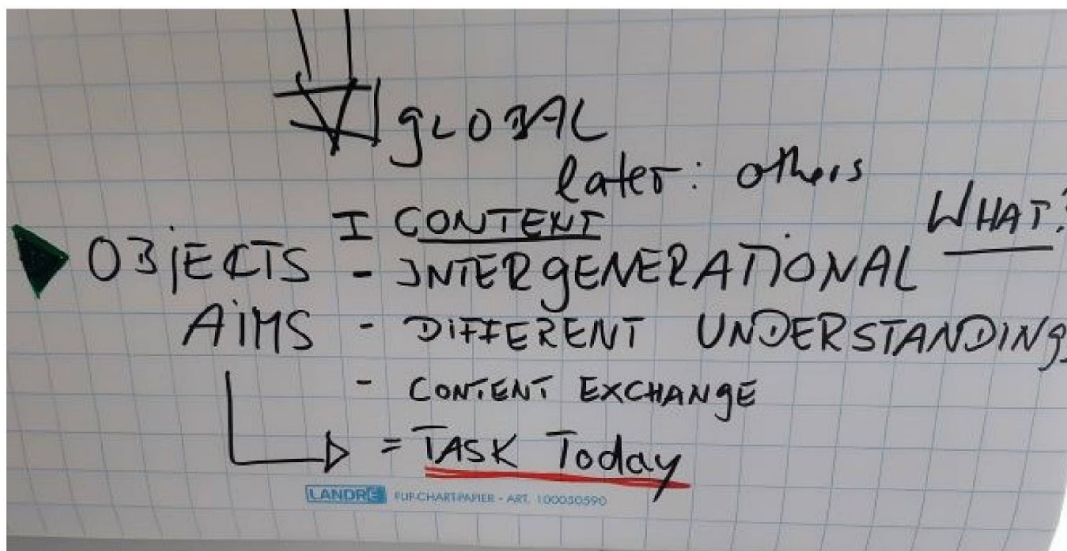 GLOBAL
later: others
I CONTENT WHAT?
OBJECTS - INTERGENERATIONAL
AIMS - DIFFERENT UNDERSTANDINGS
- CONTENT EXCHANGE
= TASK Today
LANDRÉ FLIP-CHART-PAPIER - ART. 100050590